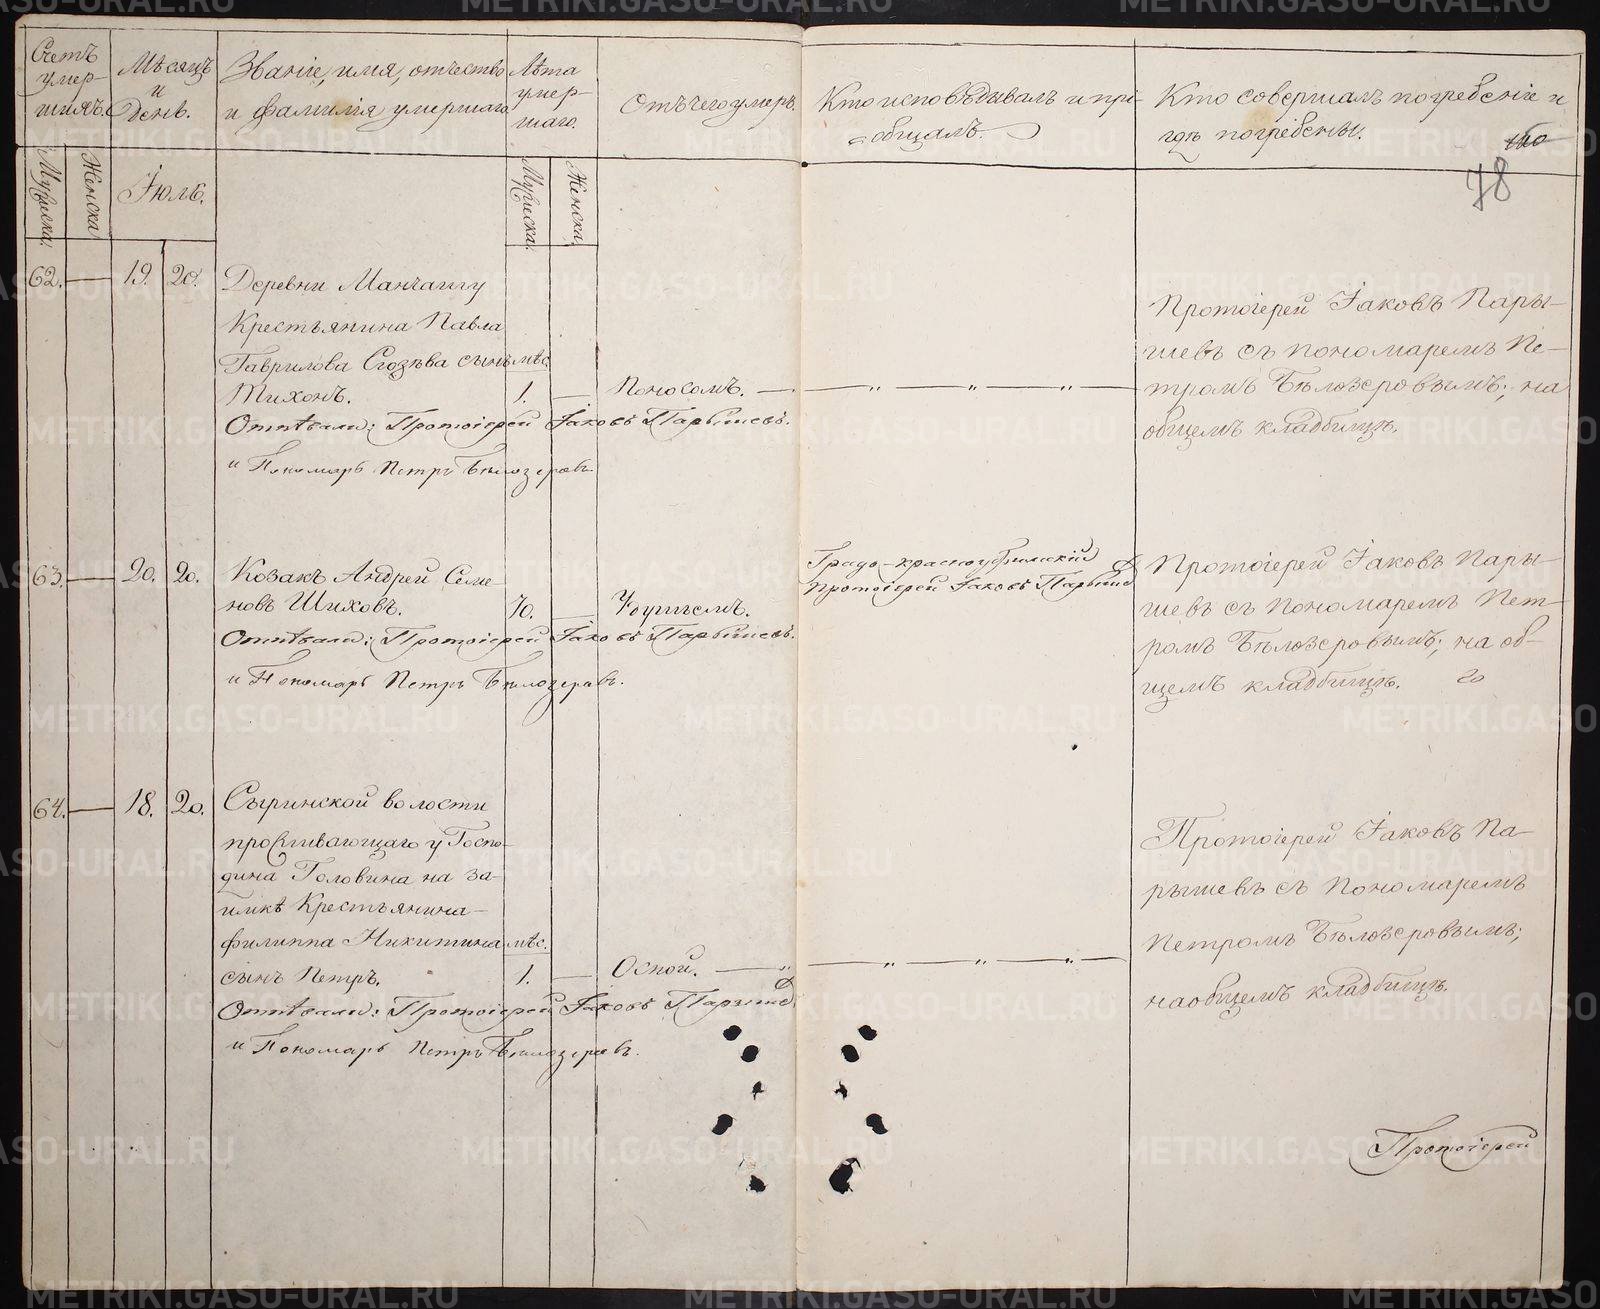 Счетъ
умер-
шихъ.
Мѣсяцъ
и
день.
Званіе, имя, отчество
и фамилія умершаго.
Лѣта
умер-
шаго.
Отъ чего умеръ.
Кто исповѣдывалъ и прі-
общалъ.
Кто совершалъ погребеніе и
гдѣ погребены.
78
Мужеска.
Женска
Іюль.
Мужеска.
Женска.
62. 19. 20.
Деревни Манчашу
Крестьянина Павла
Гаврилова сынъ мѣс.
Тихонъ. 1. Поносомъ.
Отпѣвали: Протоіерей Іаковъ Парышевъ.
и Пономарь Петръ Бѣлозеровъ.
Протоіерей Іаковъ Пары-
шевъ съ пономаремъ Пе-
тромъ Бѣлозеровымъ; на
общемъ кладбищѣ.
63. 20. 20.
Козакъ Андрей Семе
новъ Шиховъ. 70. Удушьемъ.
Отпѣвали: Протоіерей Іаковъ Парышевъ.
и Пономарь Петръ Бѣлозеровъ.
Градо-красноуфимскій
Протоіерей Іаковъ Парышевъ
Протоіерей Іаковъ Пары-
шевъ съ пономаремъ Пет-
ромъ Бѣлозеровымъ; на об-
щемъ кладбищѣ. 20
64. 18. 20.
Сыринской волости
проживающаго у Госпо-
дина Головина на за-
имкѣ Крестьянина
Филиппа Никитина мѣс.
сынъ Петръ. 1. Оспой.
Отпѣвали: Протоіерей Іаковъ Парышевъ
и Пономарь Петръ Бѣлозеровъ.
Протоіерей Іаковъ Па-
рышевъ съ пономаремъ
Петромъ Бѣлозеровымъ;
на общемъ кладбищѣ.
Протоіерей
METRIKI.GASO-URAL.RU